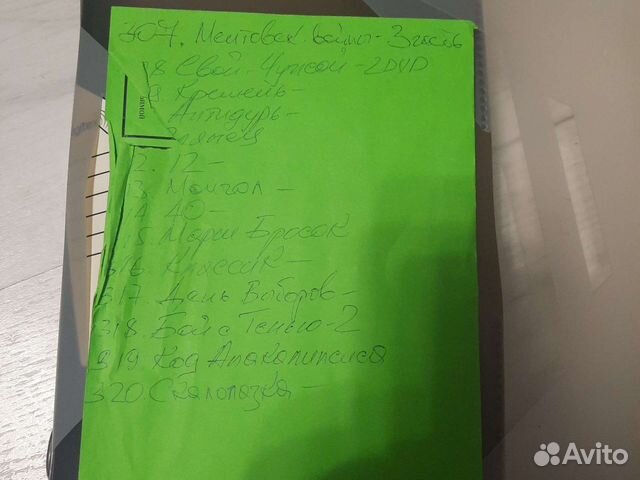 307. Ментовск. войны - 3 часть
8 Свой - Чужой - 2DVD
9 Кремень -
Антидурь -
Глянец
2. 12 -
13. Монгол -
14. 40 -
15. Марш Бросок
316. Классик -
317. День Выборов -
318. Бой с Тенью - 2
319 Код Апокалипсиса
320 Скалолазка -
Avito